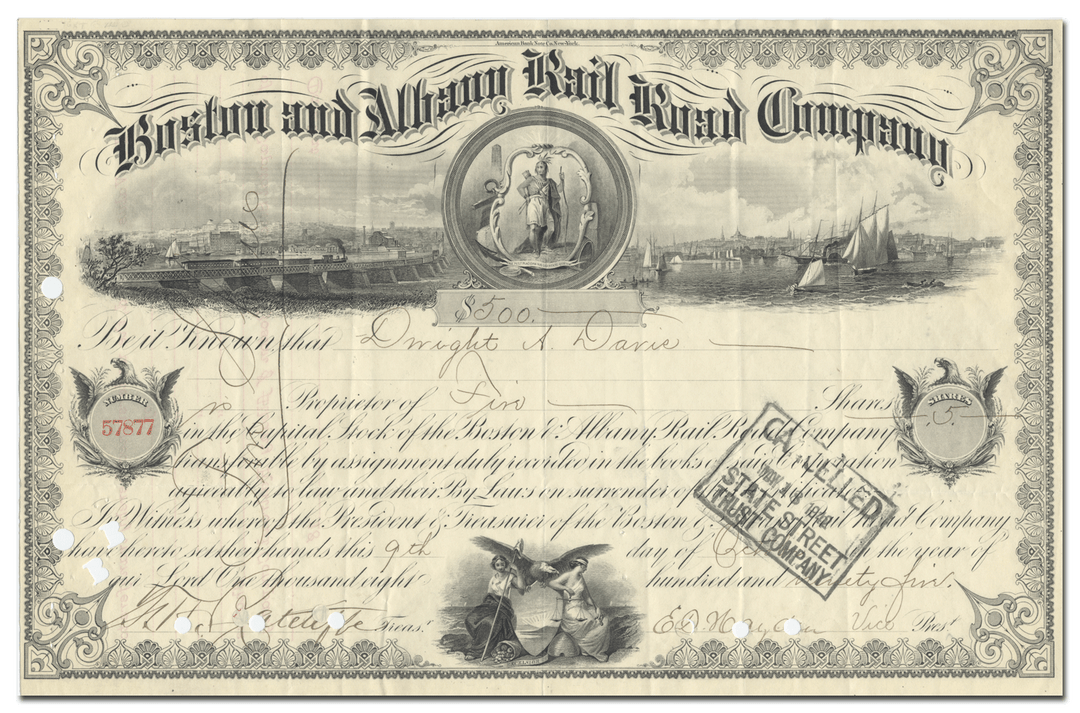 American Bank Note Co. New York.
Boston and Albany Rail Road Company
$500.
Be it Known, that Dwight A. Davis
Proprietor of Five Shares
NUMBER
57877
SHARES
5
in the Capital Stock of the Boston & Albany Rail Road Company
transferable by assignment duly recorded in the books of said Corporation
agreeably to law and their By Laws on surrender of
In Witness whereof the President & Treasurer of the Boston & Company
have hereto set their hands this 9th day of the year of
our Lord One Thousand eight hundred and ninety five.
Treas.r Vice Pres.t
CANCELLED
STATE STREET
TRUST COMPANY